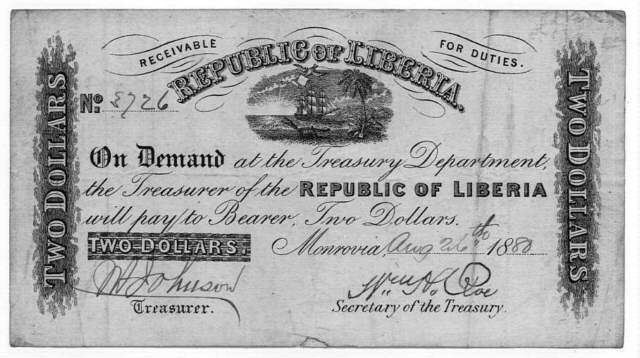 RECEIVABLE FOR DUTIES.
REPUBLIC OF LIBERIA.
TWO DOLLARS
TWO DOLLARS
No. 2726
On Demand at the Treasury Department,
the Treasurer of the REPUBLIC OF LIBERIA
will pay to Bearer, Two Dollars.
TWO-DOLLARS. Monrovia, Aug 26th 1880
Johnson Wm H. Roe
Treasurer. Secretary of the Treasury.